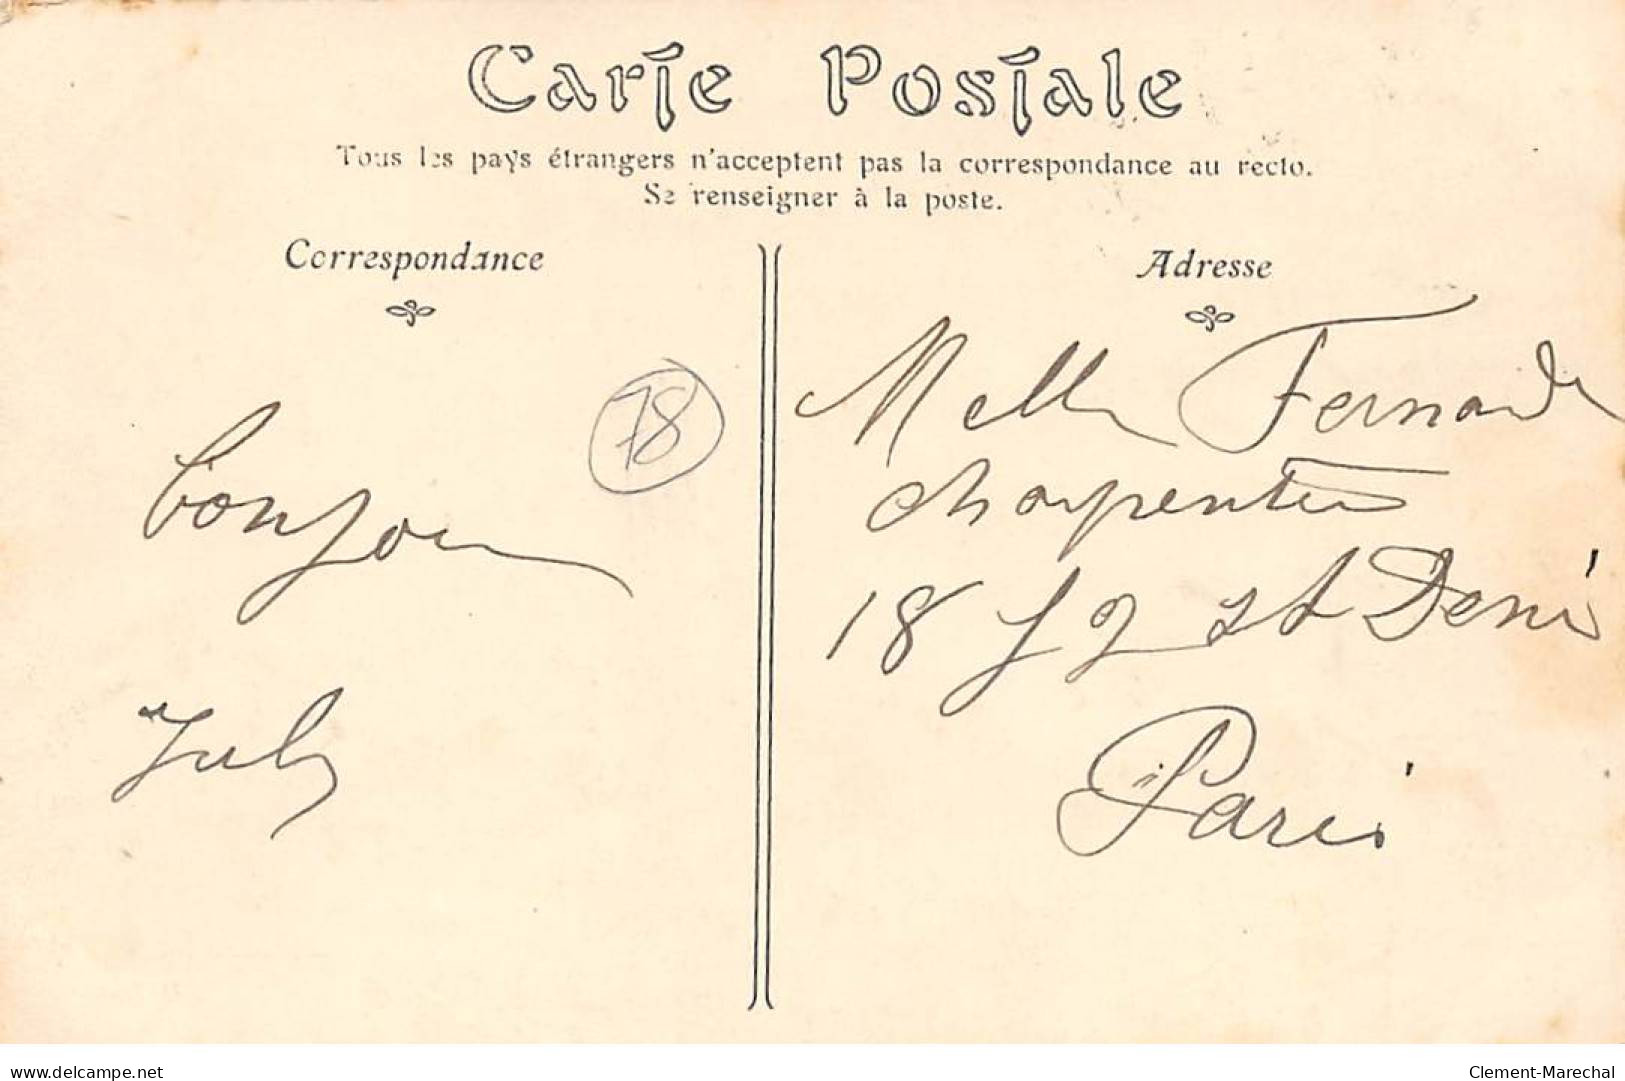 Carte Postale
Tous les pays étrangers n'acceptent pas la correspondance au recto.
Se renseigner à la poste.
Correspondance
Adresse
78
Bonjour
July
Melle Fernande
charpentier
18 f g st Denis
Paris
www.delcampe.net
Clement-Marechal